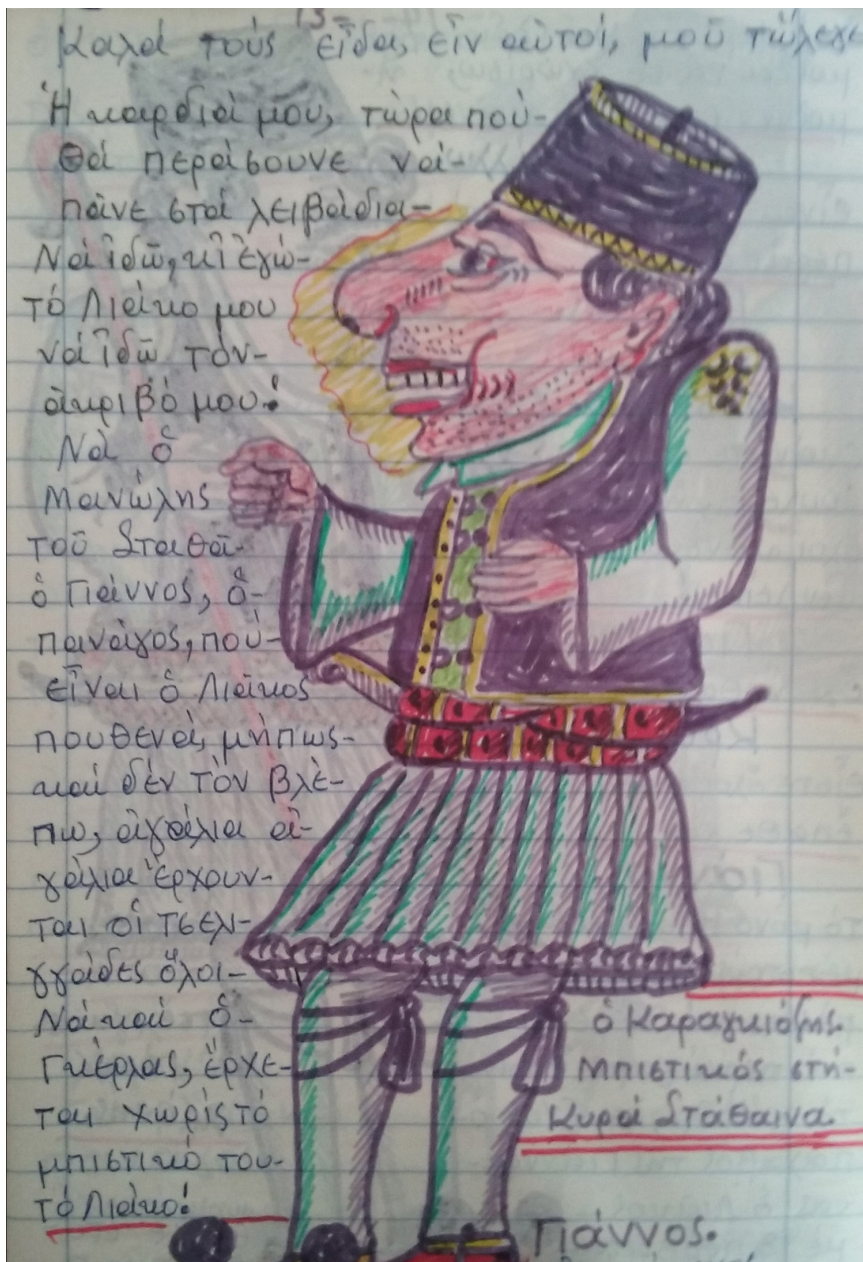 Καλά τούς εἶδα, εἶν αὐτοί, μοῦ τὤλεγε
Ἡ καρδιά μου, τώρα πού-
θά περάσουνε νά-
πᾶνε στά λειβάδια-
Νά ἰδῶ, κι ἐγώ-
τό Λιάκο μου
νά ἰδῶ τόν-
ἀκριβό μου!
Νά ὁ
Μανώλης
τοῦ Σταθᾶ-
ὁ Γιάννος, ὁ-
πανάγος, πού-
εἶναι ὁ Λιάκος
πουθενά, μήπως-
καί δέν τόν βλέ-
πω, ἀγάλια ἀ-
γάλια ἔρχουν-
ται οἱ τσελι-
γγάδες ὅλοι-
Νά καί ὁ-
Γκέρλας, ἔρχε-
ται χωρίς τό
μπιστικό του-
τό Λιάκο!
ὁ Καραγκιόζης.
Μπιστικός στή-
Κυρά Στάθαινα.
Γιάννος.